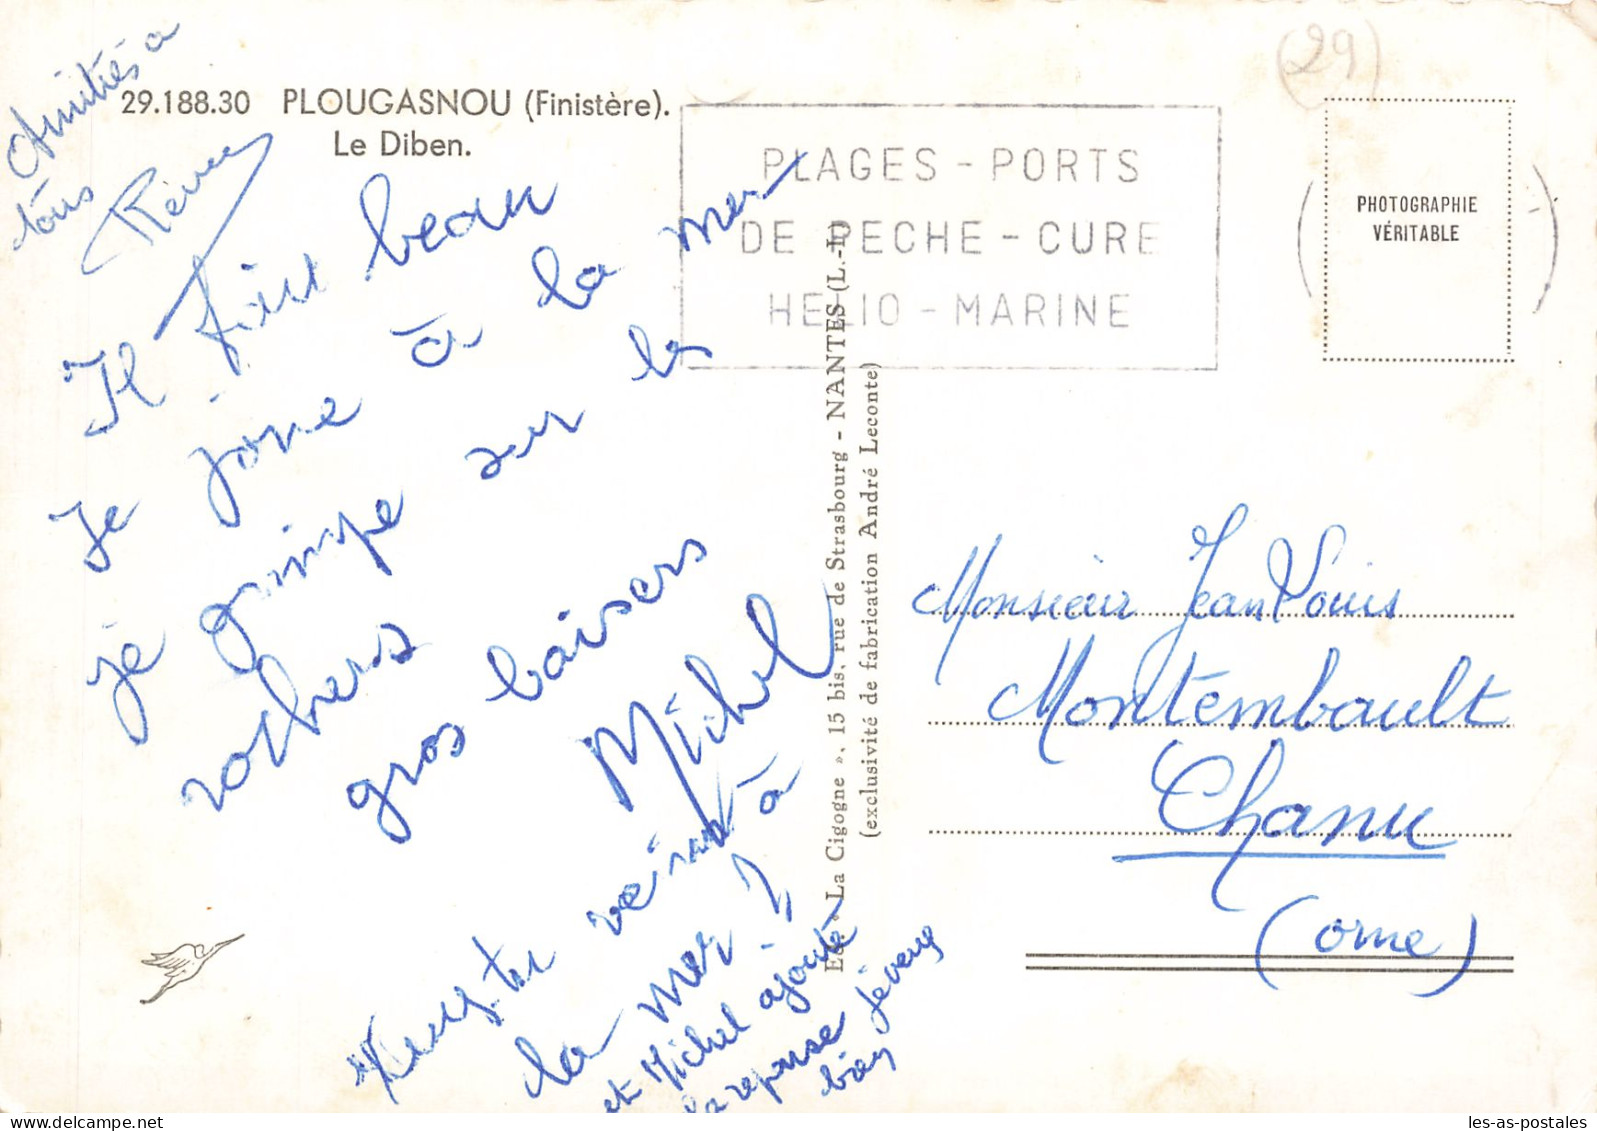 Amitiés à
tous
29.188.30 PLOUGASNOU (Finistère).
Le Diben.
Il fait beau
Je joue à la mer
je grimpe sur les
rochers
gros baisers
Michel
veux tu venir à
la mer ?
et Michel ajoute
la reponse je veux
bien
Ed. « La Cigogne », 15 bis, rue de Strasbourg - NANTES (L.-I
(exclusivité de fabrication André Leconte)
PLAGES - PORTS
DE PECHE - CURE
HELIO - MARINE
(29)
PHOTOGRAPHIE
VÉRITABLE
Monsieur Jean Louis
Montembault
Chanu
(orne)
les-as-postales